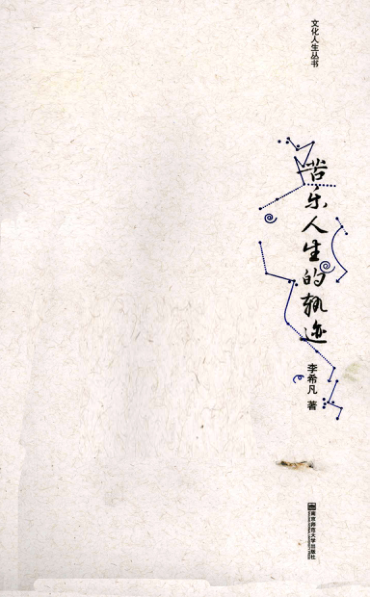 文化人生丛书
苦乐人生的轨迹
李希凡 著
南京师范大学出版社